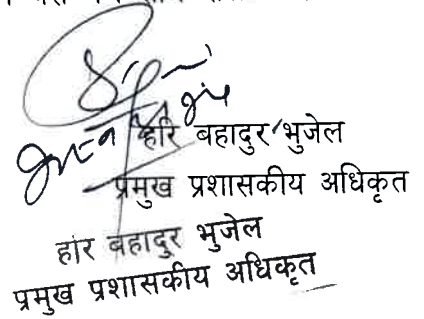 हरि बहादुर भुजेल
प्रमुख प्रशासकीय अधिकृत
हरि बहादुर भुजेल
प्रमुख प्रशासकीय अधिकृत